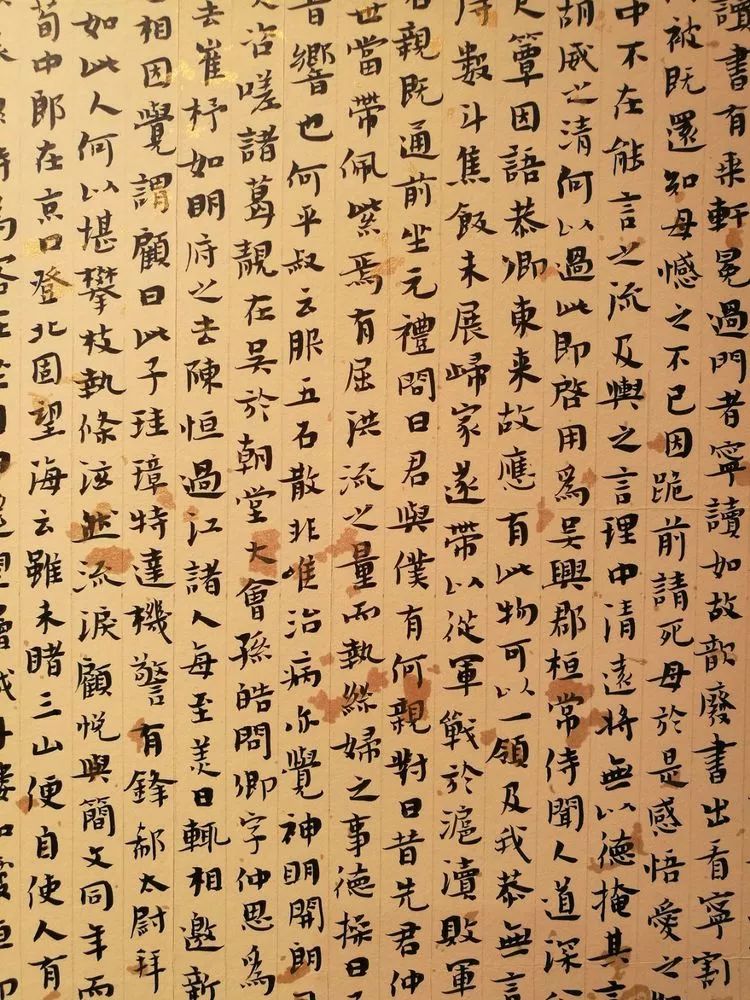 讀書有乘軒冕過門者寧讀如故歆廢書出看寧割
被既還知母憾之不已因跪前請死母於是感悟愛之
中不在能言之流及輿之言理中清遠將無以德掩其言
胡威之清何以過此即啓用為吳興郡桓常侍聞人道深公
簟因語恭卿東来故應有此物可以一領及我恭無言
數斗焦飯未展歸家遂帶以從軍戰於滬瀆敗軍
親既通前坐元禮問曰君與僕有何親對曰昔先君仲
世當帶佩紫焉有屈洪流之量而執絲婦之事德操曰
音響也何平叔云服五石散非唯治病亦覺神明開朗
咨嗟諸葛靚在吳於朝堂大會孫皓問卿字仲思為
去崔杼如明府之去陳恒過江諸人每至美日輒相邀新
相因覺謂顧曰此子珪璋特達機警有鋒郗太尉拜
如此人何以堪攀枝執條泫然流淚顧悅與簡文同年而
荀中郎在京口登北固望海云雖未睹三山便自使人有